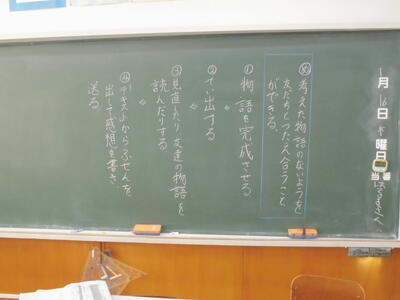 1月16日木曜日
日
め 考えた物語のないようを
友だちとつたえ合うこと
ができる。
①物語を完成させる
②てい出する
③見直したり友達の物語を
読んだりする
④テキストからふせんを
出して感想を書き、
送る